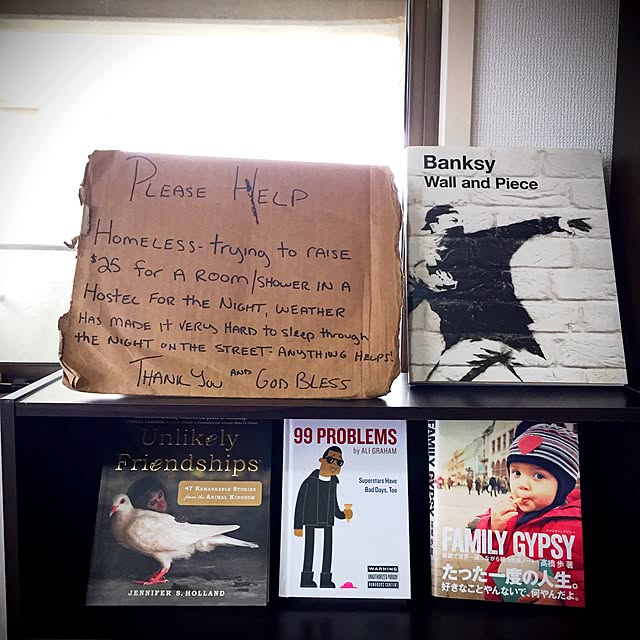 PLEASE HELP
HOMELESS - trying to RAISE
$25 for A ROOM/SHOWER IN A
HOSTEL FOR the NIGHT, WEATHER
HAS MADE it VERY HARD to sleep through
the NIGHT ON the STREET - ANYTHING HELPS!
THANK YOU AND GOD BLESS
Banksy
Wall and Piece
Unlikely
Friendships
47 REMARKABLE STORIES
from the ANIMAL KINGDOM
JENNIFER S. HOLLAND
99 PROBLEMS
by ALI GRAHAM
Superstars Have
Bad Days, Too
WARNING
UNAUTHORIZED PARODY
HUMOROUS CONTENT
FAMILY GYPSY
FAMILY GYPSY
高橋 歩 著
たった一度の人生。
好きなことやんないで、何やんだよ。